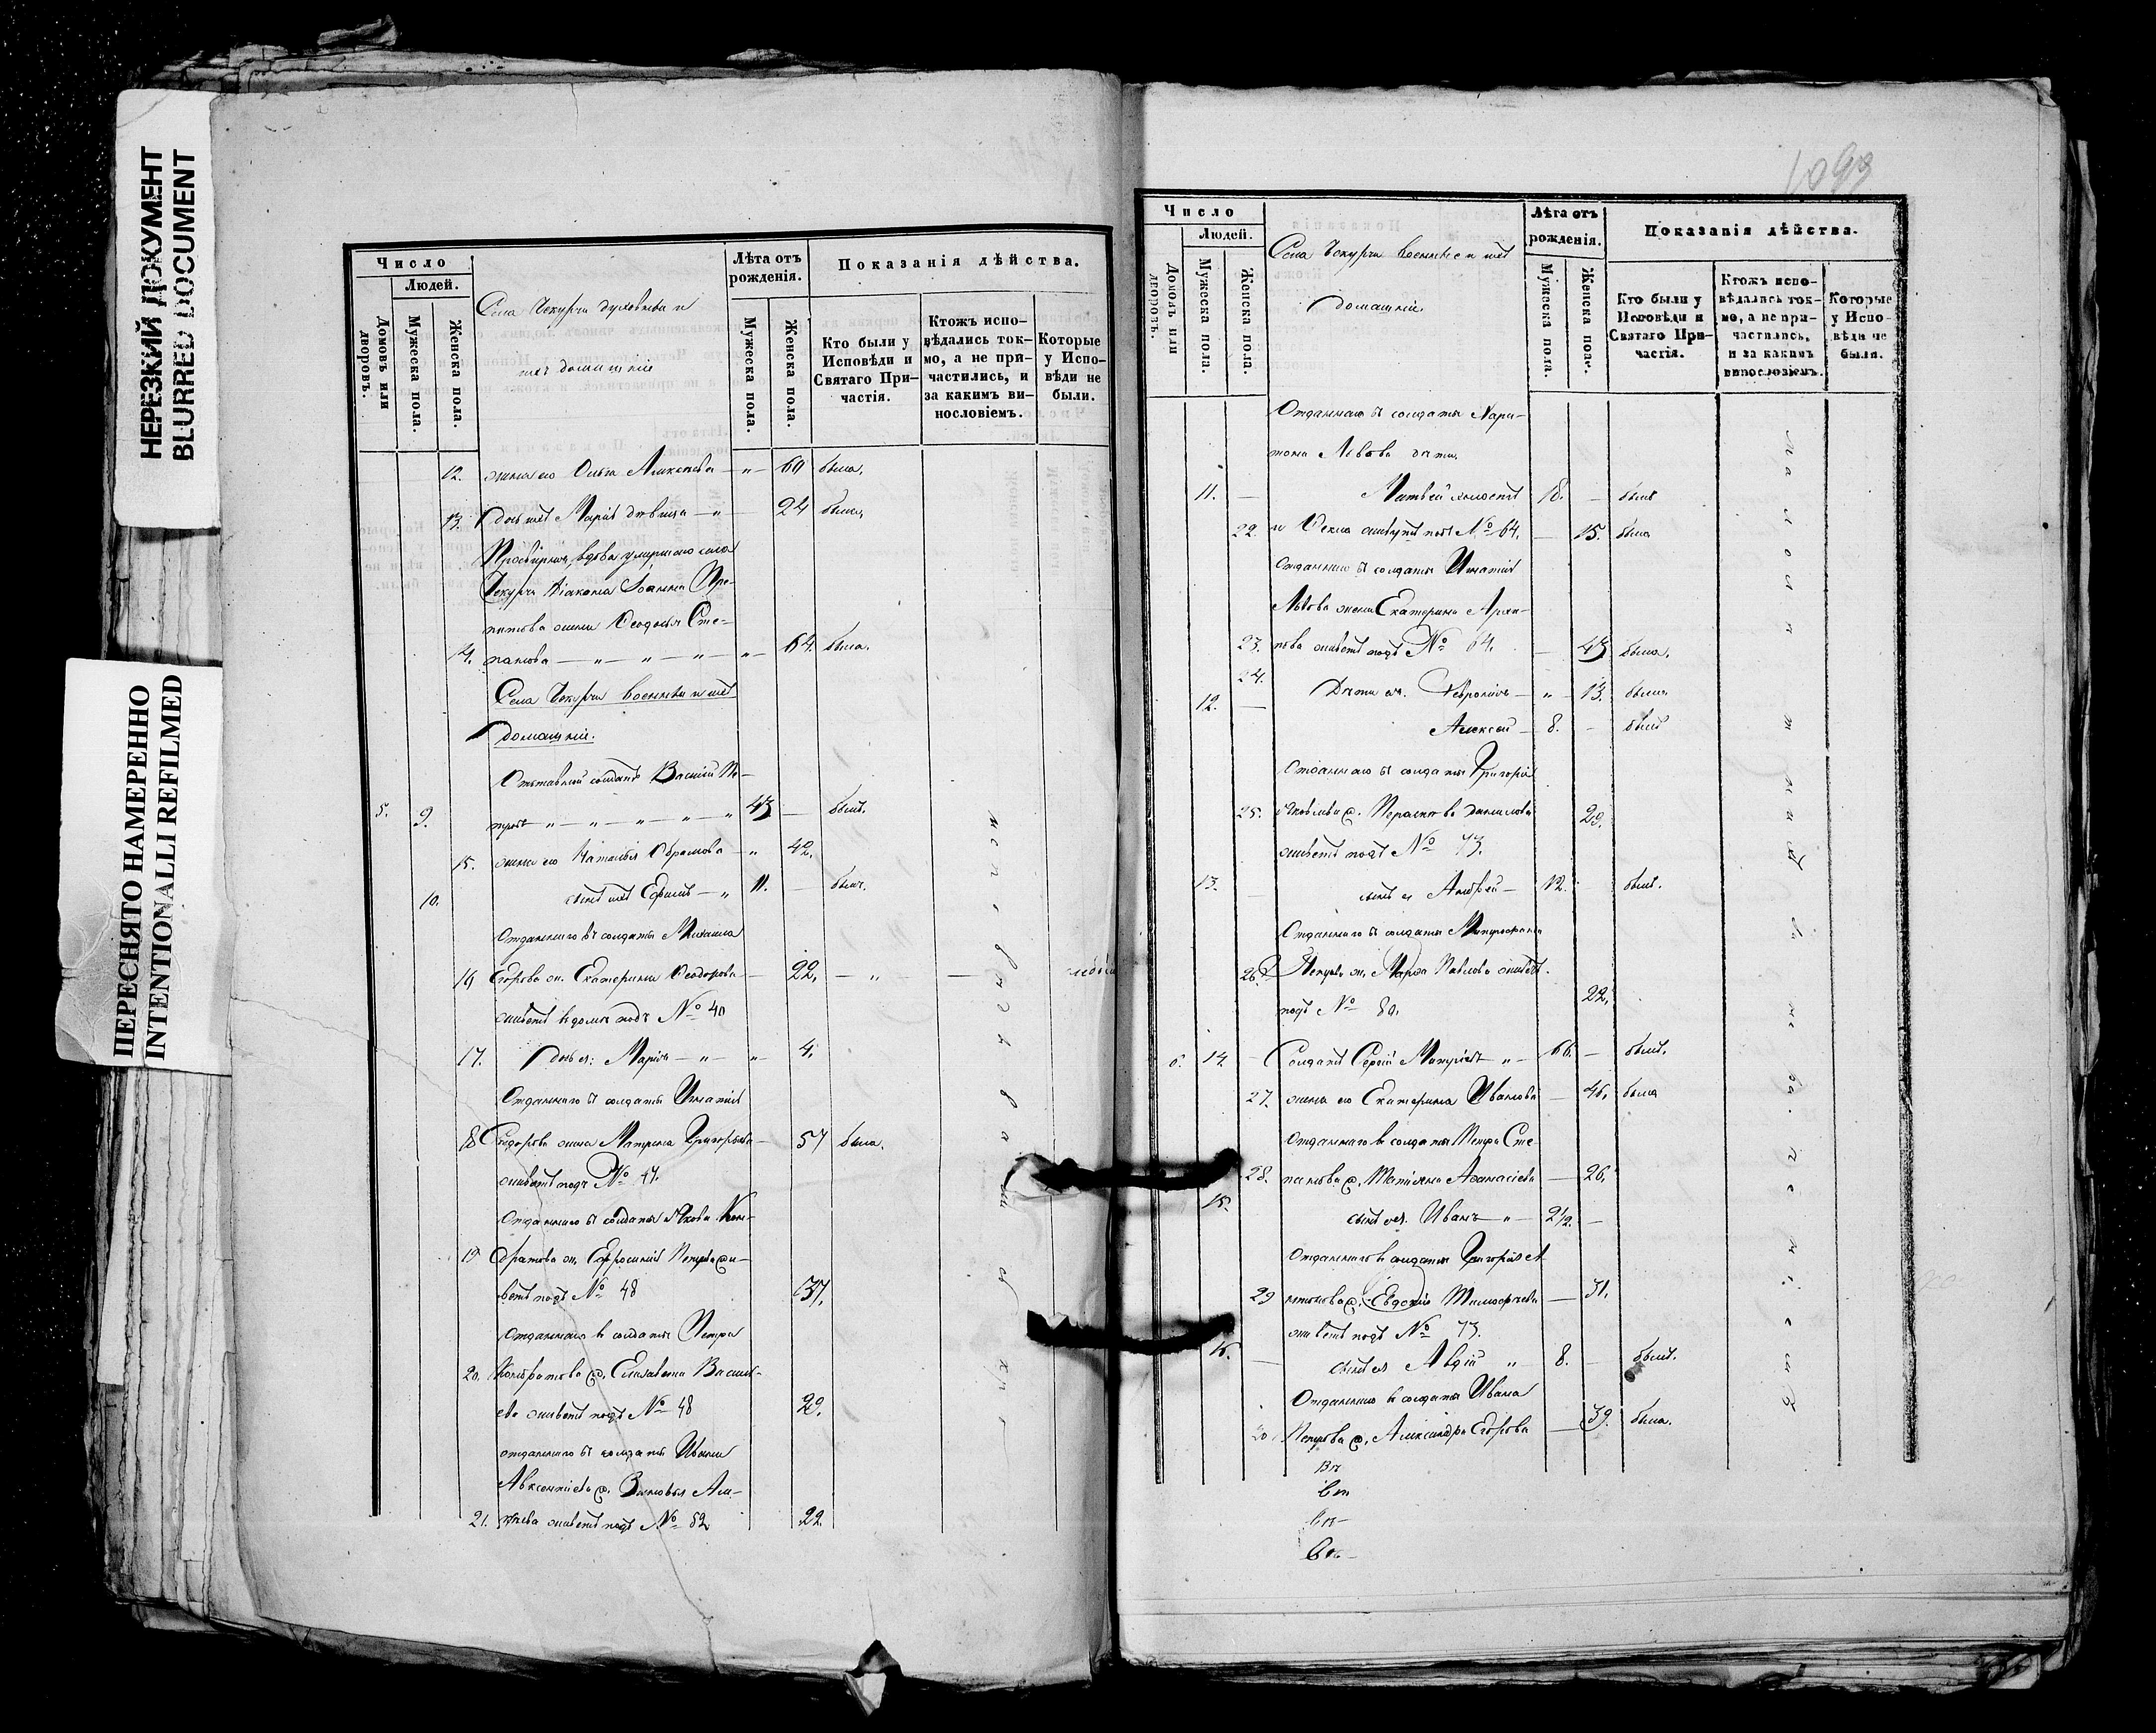 НЕРЕЗКИЙ ДОКУМЕНТ
BLURRED DOCUMENT
ПЕРЕСНЯТО НАМЕРЕННО
INTENTIONALLI REFILMED
Число
Людей.
Домовъ или дворовъ.
Мужеска пола.
Женска пола.
Села Чекурчи духовныя и
ихъ домашніе
Лѣта отъ рожденія.
Мужеска пола.
Женска пола.
Показанія дѣйства.
Кто были у Исповѣди и Святаго Причастія.
Ктожъ исповѣдались токмо, а не причастились, и за какимъ винословіемъ.
Которые у Исповѣди не были.
12. жена его Ольга Алексѣева — „ — 60 была,
13. Дочь ихъ Марія дѣвица — „ — 24 была,
вдова умершаго села
Чекурчи діакона Іоанна
жена Ѳеодосья Сте-
14. панова — „ — „ — „ — „ — 64. была.
Села Чекурчи военные и ихъ
домашніе.
Отставный солдатъ Василій Пе-
5. 9. тровъ „ — „ — „ — „ — „ 43 — былъ.
15. жена его Наталья Абрамова — „ 42,
10. сынъ ихъ Ефимъ — „ 11. — былъ.
Отданнаго въ солдаты Михаила
16 Егорова ж. Екатерина Ѳеодорова — 22, — „ —
живетъ въ домѣ подъ № 40
17. Дочь ея: Марія — „ — „ 4.
Отданнаго въ солдаты Игнатія
18 Сидорова жена Матрена Григорьева — 57 была.
живетъ подъ № 47.
Отданнаго въ солдаты Якова Кон-
19 дратова ж. Ефросинія Петрова жи-
ветъ подъ № 48 37,
Отданнаго въ солдаты Петра
20. Кондратова ж. Елизавета Василь-
ева живетъ подъ № 48 29.
отданнаго въ солдаты Ивана
Авксентіева ж. Зиновья Але-
21. ксѣева живетъ подъ № 52 22.
1093
Число
Людей.
Домовъ или дворовъ.
Мужеска пола.
Женска пола.
Села Чекурчи военные и ихъ
домашніе.
Лѣта отъ рожденія.
Мужеска пола.
Женска пола.
Показанія дѣйства.
Кто были у Исповѣди и Святаго Причастія.
Ктожъ исповѣдались токмо, а не причастились, и за какимъ винословіемъ.
Которые у Исповѣди не были.
Отданнаго въ солдаты Хари-
тона Львова дѣти.
11. — Матвей холостъ 18. — былъ
22. и Ѳекла живутъ подъ № 64. — 15. была
Отданнаго въ солдаты Игнатія
Львова жена Екатерина Архи-
23. пова живетъ подъ № 64. — 43 была.
24. Дѣти ея. Февронія — „ — 13. была
12. — Алексѣй — 8. — былъ
Отданнаго въ солдаты Григорія
25. Яковлева ж. Парасковья Данилова 29.
живетъ подъ № 73.
13. — сынъ ея Андрей — 12. — былъ.
Отданнаго въ солдаты Митрофана
26. Петрова ж. Марѳа Павлова живетъ
подъ № 80. 22,
6. 14. — Солдатъ Сергій — „ — 66. — былъ.
27. жена его Екатерина Иванова — 46, была
Отданнаго въ солдаты Петра Сте-
28. панова ж. Татіяна Аѳанасіева — 26,
15. сынъ ея. Иванъ — „ — 2½. —
Отданнаго въ солдаты Григорія А
29 нтонова ж. Евдокія Тимофѣева — 31.
живетъ подъ № 73.
16. — сынъ ея Авдій „ — 8. — былъ.
Отданнаго въ солдаты Ивана
30 Петрова ж. Александра Егорова — 39. была.